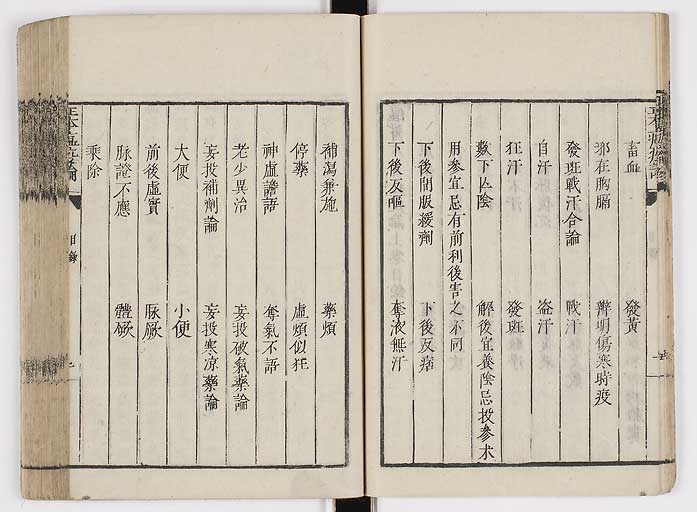 畜血 發黃
邪在胸膈 辨明傷寒時疫
發斑戰汗合論 戰汗
自汗 盜汗
狂汗 發斑
數下亡陰 解後宜養陰忌投參朮
用參宜忌有前利後害之不同
下後間服緩劑 下後反痞
下後反嘔 奪液無汗
補瀉兼施 藥煩
停藥 虛煩似狂
神虛譫語 奪氣不語
老少異治 妄投破氣藥論
妄投補劑論 妄投寒涼藥論
大便 小便
前後虛實 脈厥
脉證不應 體厥
乘除
目錄